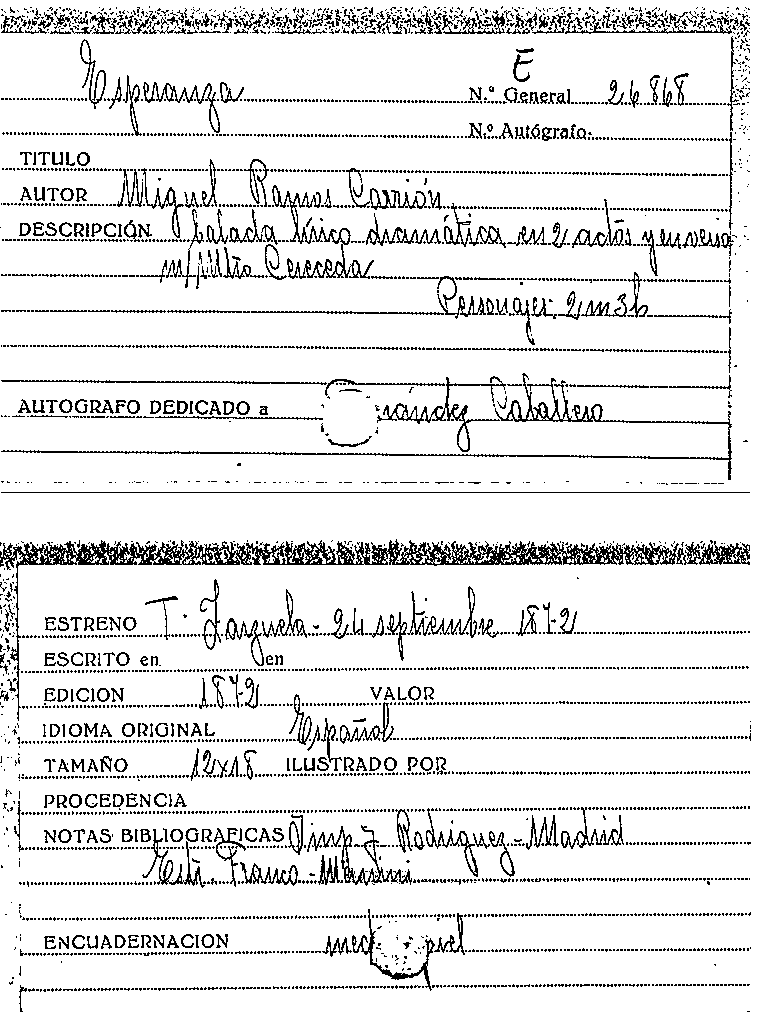 E
Esperanza
N.º General 26868
N.º Autógrafo.
TITULO
AUTOR Miguel Ramos Carrión.
DESCRIPCIÓN balada lírico dramática en 2 actos y en verso
m/ Mtro Cereceda
Personajes: 2 m 3 h
AUTOGRAFO DEDICADO a nández Caballero
ESTRENO T. Zarzuela - 24 septiembre 1872
ESCRITO en en
EDICION 1872 VALOR
IDIOMA ORIGINAL Español
TAMAÑO 12x18 ILUSTRADO POR
PROCEDENCIA
NOTAS BIBLIOGRAFICAS Imp J Rodriguez - Madrid
Franco -
ENCUADERNACION med piel